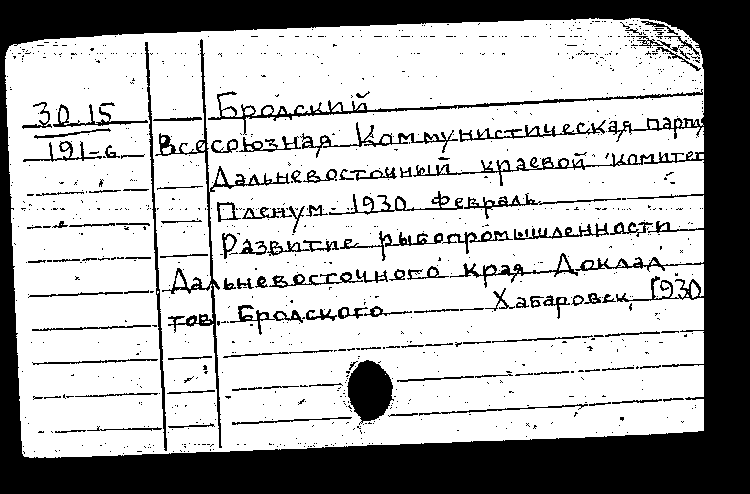 30.15 Бродский
191-6 Всесоюзная Коммунистическая парти
Дальневосточный краевой комитет
Пленум. 1930. февраль.
Развитие рыбопромышленности
Дальневосточного края. Доклад
тов. Бродского Хабаровск, 1930